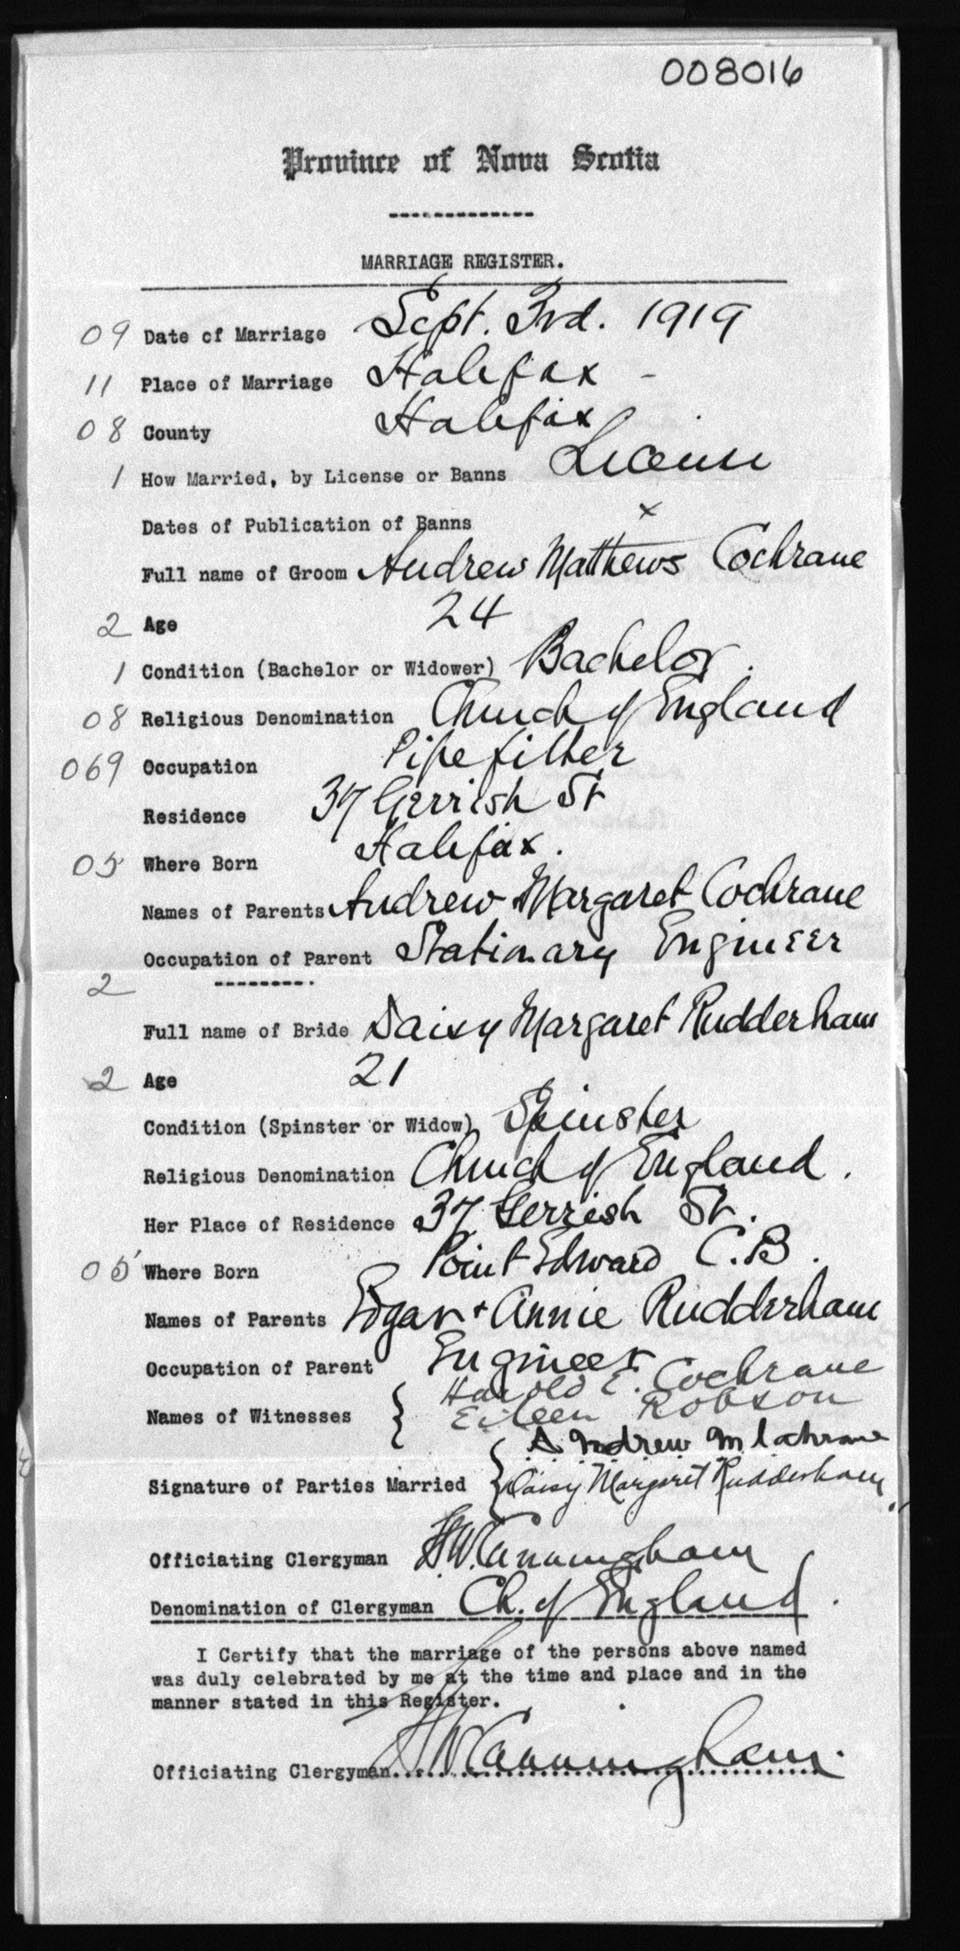 008016
Province of Nova Scotia
MARRIAGE REGISTER.
09 Date of Marriage Sept. 3rd. 1919
11 Place of Marriage Halifax -
08 County Halifax
1 How Married, by License or Banns License
Dates of Publication of Banns x
Full name of Groom Andrew Matthews Cochrane
2 Age 24
1 Condition (Bachelor or Widower) Bachelor.
08 Religious Denomination Church of England
069 Occupation Pipefitter
Residence 37 Gerrish St
05 Where Born Halifax.
Names of Parents Andrew + Margaret Cochrane
Occupation of Parent Stationary Engineer
2
Full name of Bride Daisy Margaret Rudderham
2 Age 21
Condition (Spinster or Widow) Spinster
Religious Denomination Church of England.
Her Place of Residence 37 Gerrish St.
05 Where Born Point Edward C.B.
Names of Parents Edgar + Annie Rudderham
Occupation of Parent Engineer
Names of Witnesses { Harold E. Cochrane
Eileen Robson
Signature of Parties Married { Andrew M Cochrane
Daisy Margaret Rudderham
Officiating Clergyman H.W. Cunningham
Denomination of Clergyman Ch. of England.
I Certify that the marriage of the persons above named
was duly celebrated by me at the time and place and in the
manner stated in this Register.
Officiating Clergyman H W Cunningham.